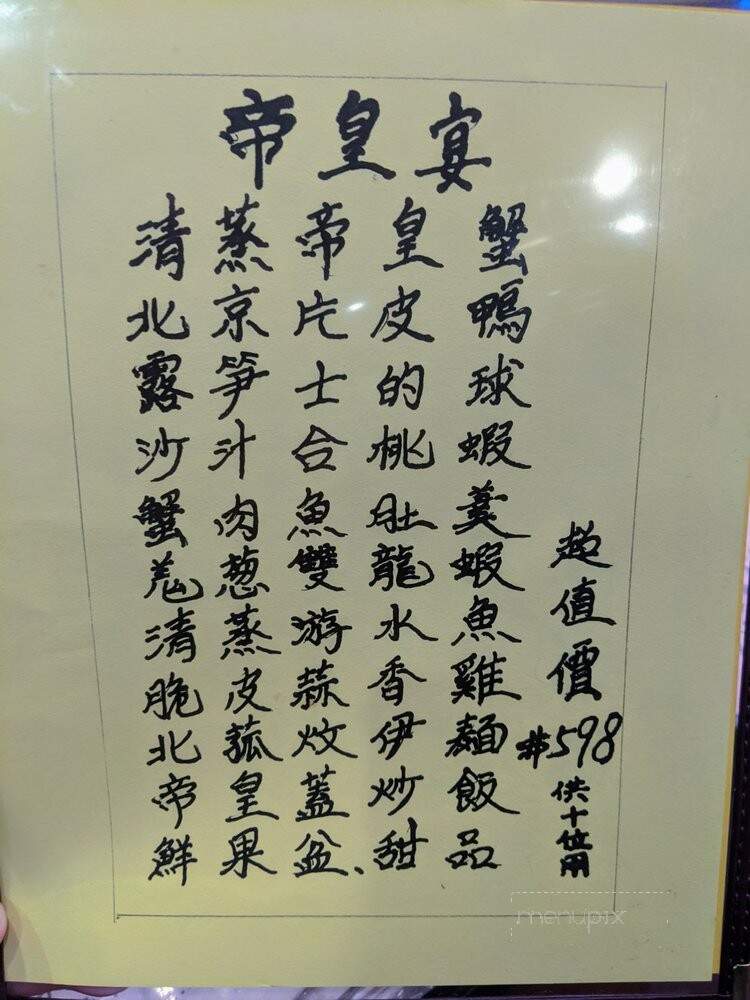 帝皇宴
清蒸帝皇蟹
北京片皮鴨
露笋士的球
沙汁合桃蝦
蟹肉魚肚羹
羌葱雙龍蝦
清蒸游水魚
脆皮蒜香雞
北菰炆伊麵
帝皇蓋炒飯
鮮果盆、甜品
超值價
$598
供十位用
menupix